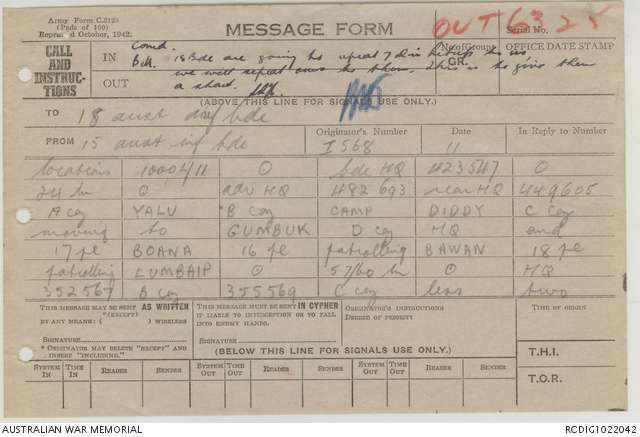 Army Form C.2128
(Pads of 100)
Reprinted October, 1942.
MESSAGE FORM
OUT 6325
Serial No.
CALL AND INSTRUCTIONS
IN
OUT
Comd.
Bde. 18 Bde are going to repeat 7 div to us
we will repeat ours to them. This is to give them
a start.
No. of Groups
GR.
OFFICE DATE STAMP
(ABOVE THIS LINE FOR SIGNALS USE ONLY.)
TO 18 aust inf bde
FROM 15 aust inf bde
Originator's Number
I 568
Date
11
In Reply to Number
locations 1000L/11 O bde HQ 423547 O
24 bn O adv HQ 482693 rear HQ 449605
A coy YALU B coy CAMP DIDDY C coy
moving to GUMBUK D coy HQ and
17 pl BOANA 16 pl patrolling BAWAN 18 pl
patrolling LUMBAIP O 57/60 bn O HQ
352567 B coy 355569 C coy less two
THIS MESSAGE MAY BE SENT AS WRITTEN
*(EXCEPT)
BY ANY MEANS: ( ) WIRELESS
SIGNATURE
* ORIGINATOR MAY DELETE "EXCEPT" AND
INSERT "INCLUDING."
THIS MESSAGE MUST BE SENT IN CYPHER
IF LIABLE TO INTERCEPTION OR TO FALL
INTO ENEMY HANDS.
SIGNATURE
ORIGINATOR'S INSTRUCTIONS
DEGREE OF PRIORITY
TIME OF ORIGIN
(BELOW THIS LINE FOR SIGNALS USE ONLY.)
T.H.I.
T.O.R.
SYSTEM IN
TIME IN
READER
SENDER
SYSTEM OUT
TIME OUT
READER
SENDER
SYSTEM OUT
TIME OUT
READER
SENDER
AUSTRALIAN WAR MEMORIAL
RCDIG1022042